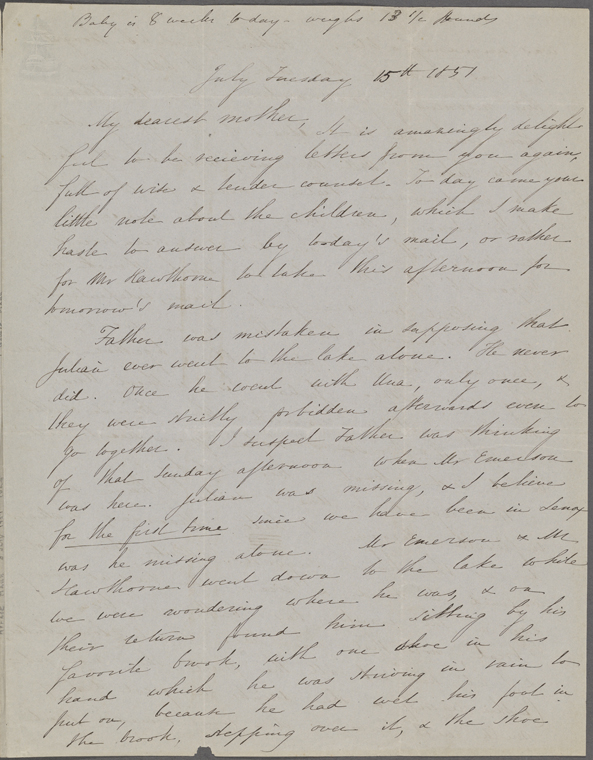 Baby is 8 weeks today - weighs 13 1/2 pounds
July Tuesday 15th 1851
My dearest mother,
It is amazingly delight-
ful to be recieving letters from you again,
full of wise & tender counsel. To day came your
little note about the children, which I make
haste to answer by today's mail, or rather
for Mr Hawthorne to take this afternoon for
tomorrow's mail.
Father was mistaken in supposing that
Julian ever went to the lake alone. He never
did. Once he went with Una, only once, &
they were strictly forbidden afterwards even to
go together. I suspect Father was thinking
of that Sunday afternoon when Mr Emerson
was here. Julian was missing, & I believe
for the first time since we have been in Lenox
was he missing alone. Mr Emerson & Mr
Hawthorne went down to the lake while
we were wondering where he was, & on
their return found him sitting by his
favorite brook, with one shoe in his
hand which he was striving in vain to
put on, because he had wet his foot in
the brook, stepping over it, & the shoe